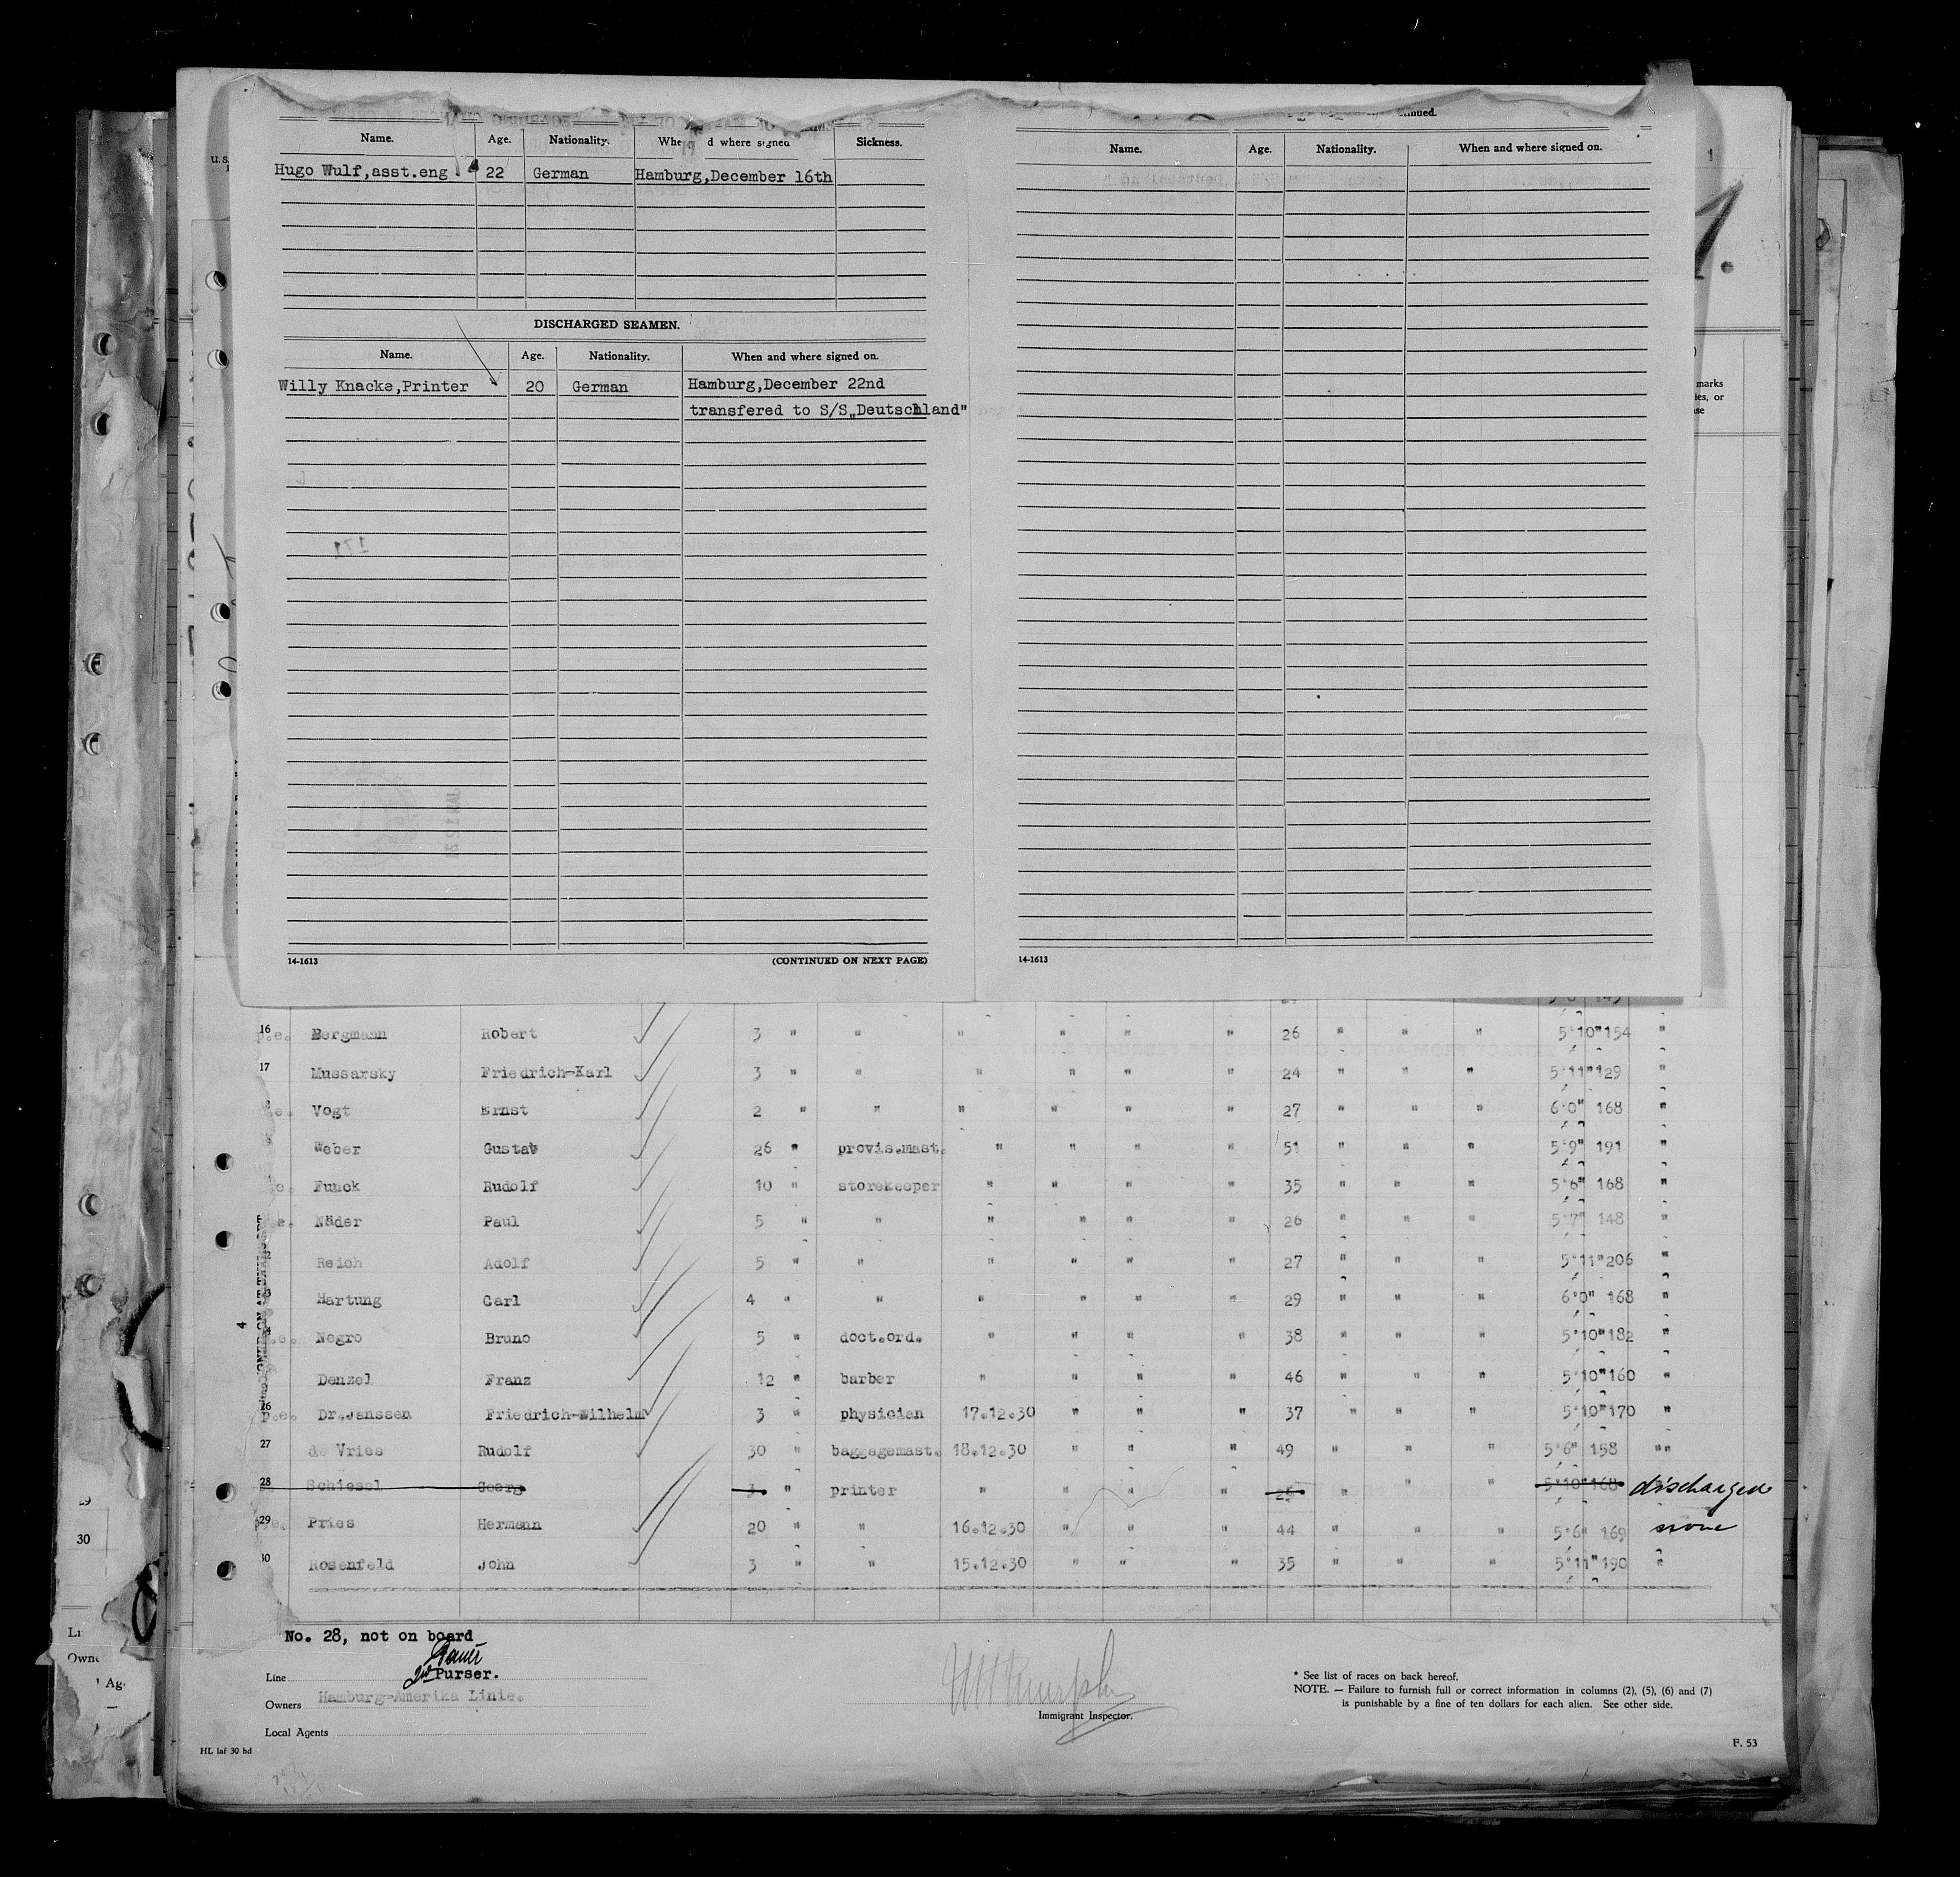 Name. Age. Nationality. d where signed Sickness.
Hugo Wulf,asst.eng. 22 German Hamburg,December 16th
DISCHARGED SEAMEN.
Name. Age. Nationality. When and where signed on.
Willy Knacke,Printer 20 German Hamburg,December 22nd
transfered to S/S„Deutschland"
14-1613 (CONTINUED ON NEXT PAGE)
Name. Age. Nationality. When and where signed on.
14-1613
1
marks
ies, or
16 p.e. Bergmann Robert 3 " " " " " " 26 " " " 5'10" 154 "
17 Mussarsky Friedrich-Karl 3 " " " " " " 24 " " " 5'11" 129 "
Vogt Ernst 2 " " " " " " 27 " " " 6'0" 168 "
Weber Gustav 26 " provis.mast. " " " " 51 " " " 5'9" 191 "
Funck Rudolf 10 " storekeeper " " " " 35 " " " 5'6" 168 "
Näder Paul 5 " " " " " " 26 " " " 5'7" 148 "
Reich Adolf 5 " " " " " " 27 " " " 5'11" 206 "
Hartung Carl 4 " " " " " " 29 " " " 6'0" 168 "
Negro Bruno 5 " doct.ord. " " " " 38 " " " 5'10" 182 "
Denzel Franz 12 " barber " " " " 46 " " " 5'10" 160 "
26 p.e. Dr.Janssen Friedrich-Wilhelm 3 " physician 17.12.30 " " " 37 " " " 5'10" 170 "
27 de Vries Rudolf 30 " baggagemast. 18.12.30 " " " 49 " " " 5'6" 158 ""
28 Schiessl Georg 3 " printer " " " " " " " 5'10" 168 discharged
29 p.e. Pries Hermann 20 " " 16.12.30 " " " 44 " " " 5'6" 169 none
30 Rosenfeld John 3 " " 15.12.30 " " " 35 " " " 5'11" 190 "
No. 28, not on board
Line Purser.
Owners Hamburg-Amerika Linie.
Local Agents
HL laf 30 hd
Immigrant Inspector.
* See list of races on back hereof.
NOTE. — Failure to furnish full or correct information in columns (2), (5), (6) and (7)
is punishable by a fine of ten dollars for each alien. See other side.
F. 53
4
30